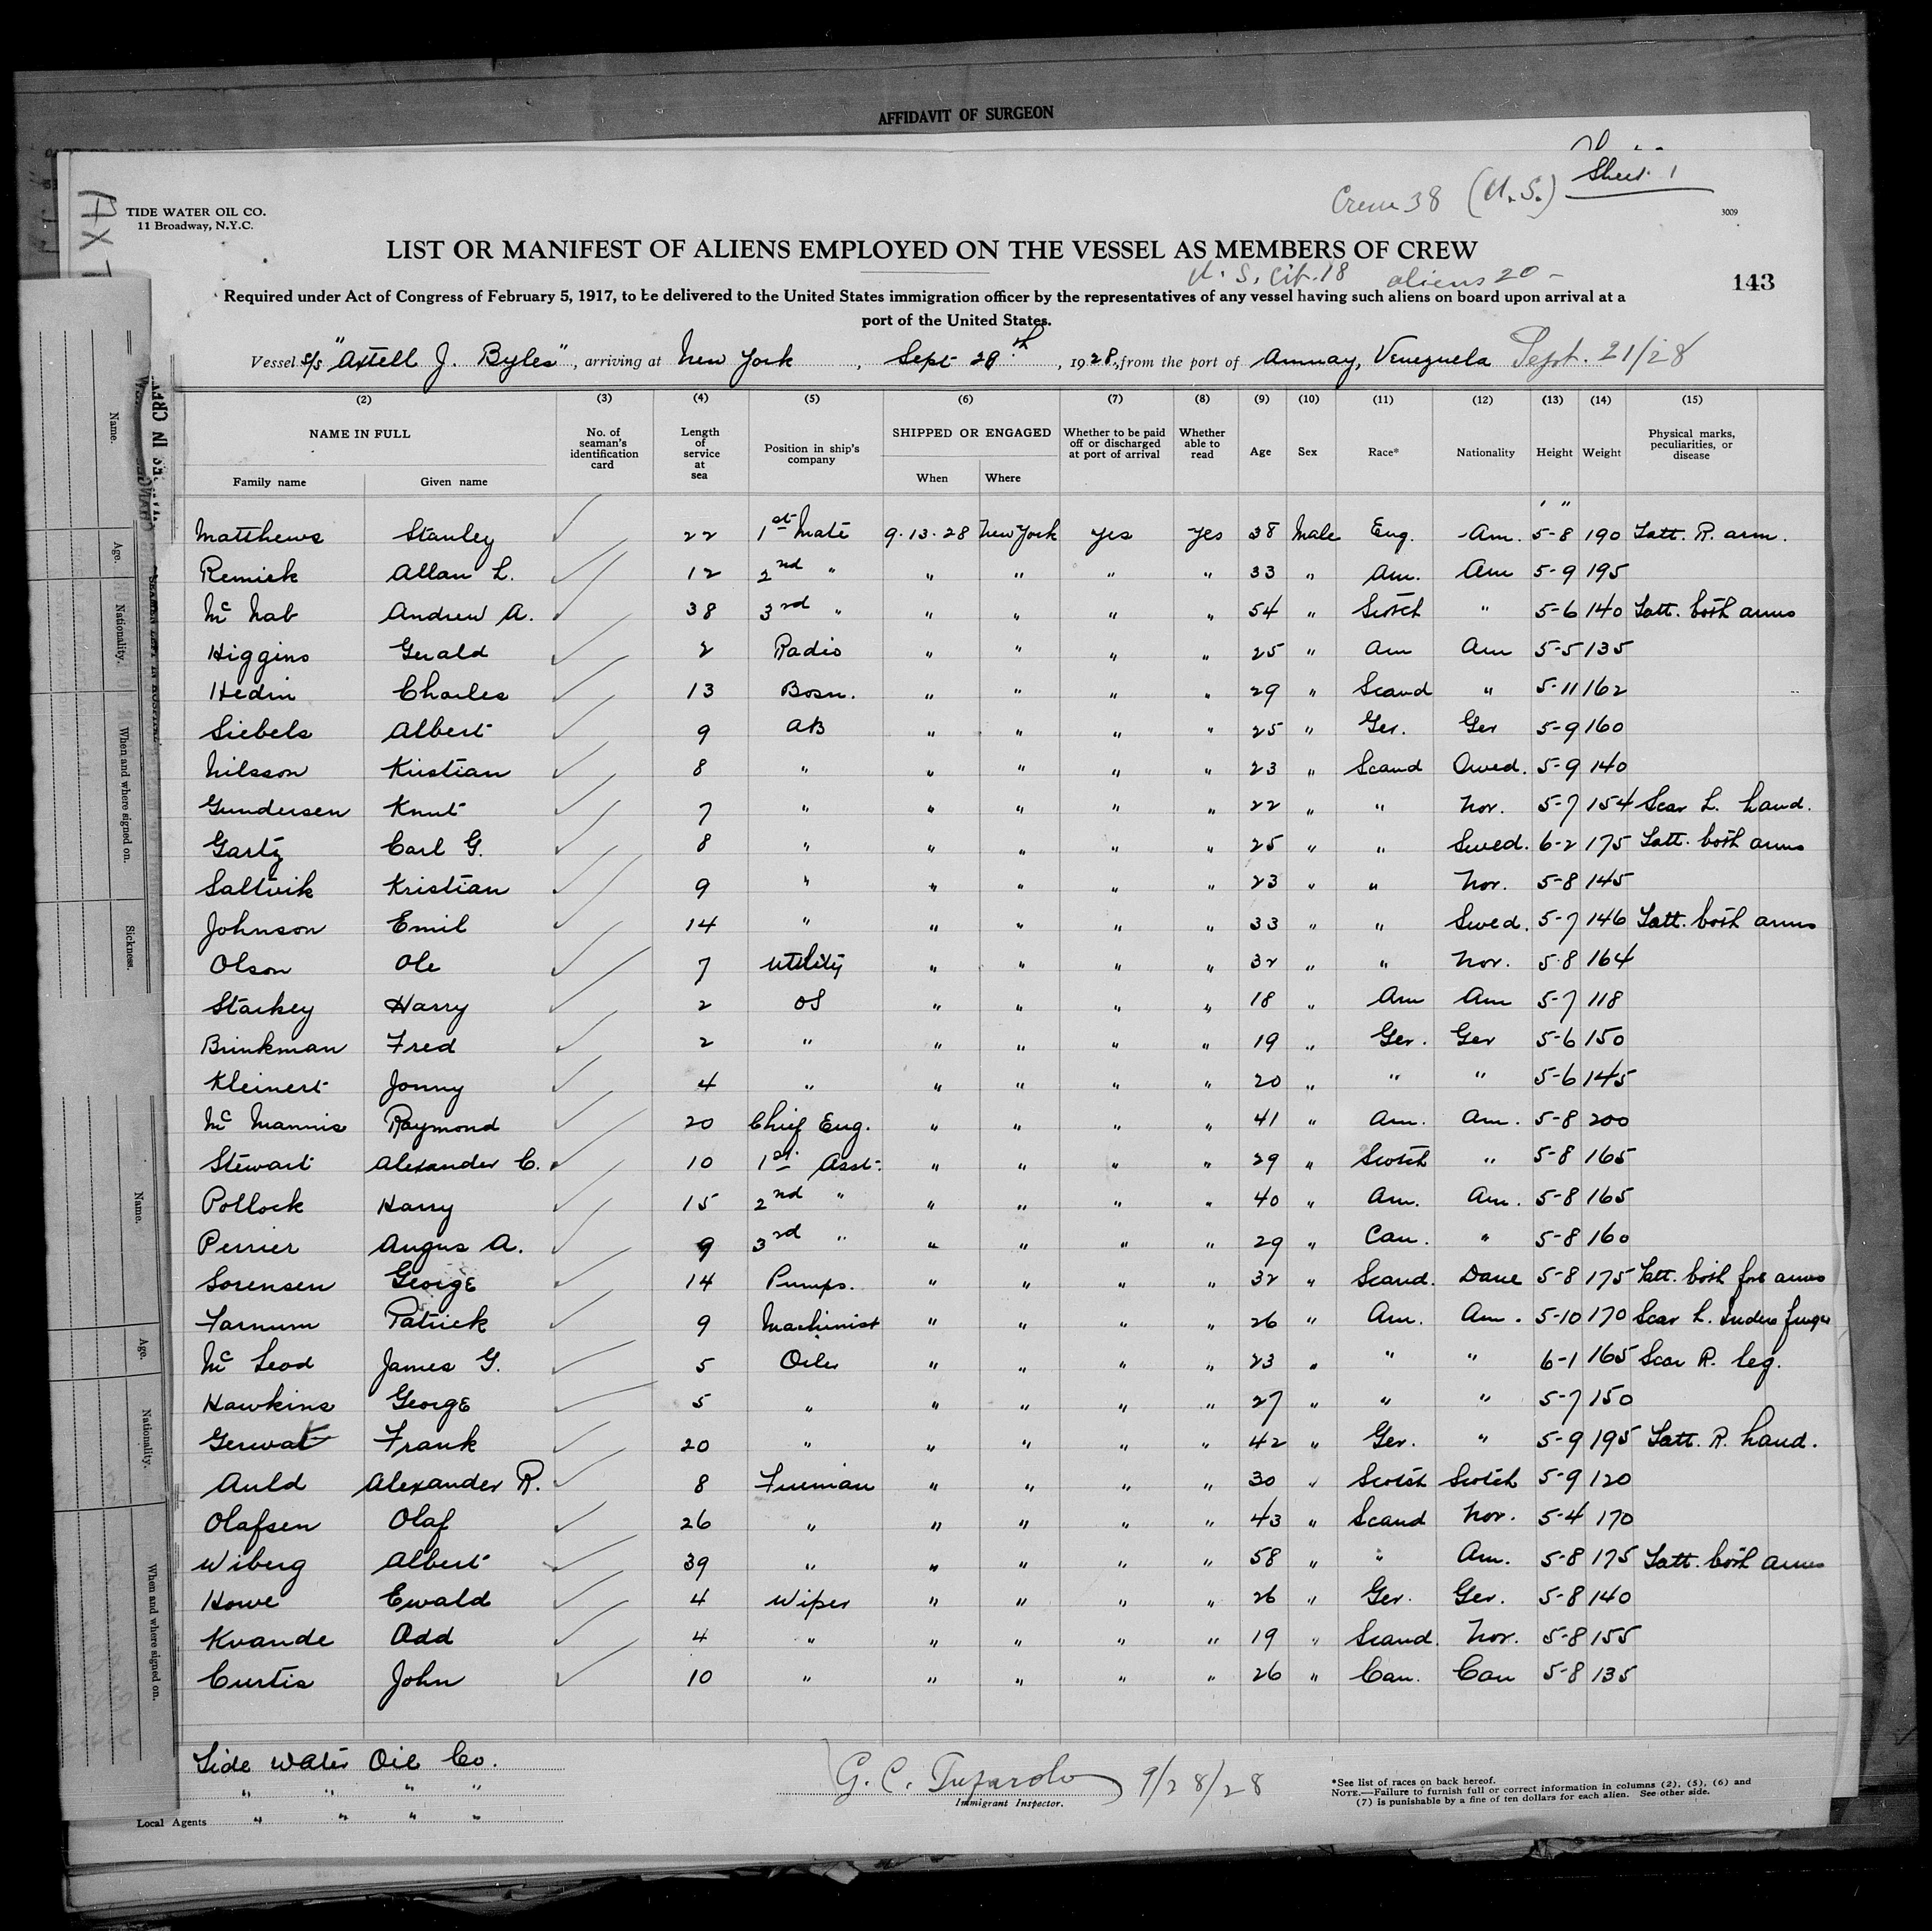 AFFIDAVIT OF SURGEON
Sheet 1
Crew 38 (U.S.)
TIDE WATER OIL CO.
11 Broadway, N.Y.C.
3009
LIST OR MANIFEST OF ALIENS EMPLOYED ON THE VESSEL AS MEMBERS OF CREW
U.S. Cit. 18 aliens 20 -
143
Required under Act of Congress of February 5, 1917, to be delivered to the United States immigration officer by the representatives of any vessel having such aliens on board upon arrival at a
port of the United States.
Vessel S/S "Axtell J. Byles", arriving at New York, Sept 28th, 1928, from the port of Amuay, Venezuela Sept. 21/28
(2) (3) (4) (5) (6) (7) (8) (9) (10) (11) (12) (13) (14) (15)
NAME IN FULL No. of seaman's identification card Length of service at sea Position in ship's company SHIPPED OR ENGAGED Whether to be paid off or discharged at port of arrival Whether able to read Age Sex Race* Nationality Height Weight Physical marks, peculiarities, or disease
Family name Given name When Where
' "
Matthews Stanley 22 1st Mate 9.13.28 New York Yes Yes 38 Male Eng. Am. 5-8 190 Tatt. R. arm.
Remick Allan L. 12 2nd " " " " " 33 " Am. Am 5-9 195
McNab Andrew A. 38 3rd " " " " " 54 " Scotch " 5-6 140 Tatt. both arms
Higgins Gerald 2 Radio " " " " 25 " Am Am 5-5 135
Hedin Charles 13 Bosn. " " " " 29 " Scand " 5-11 162
Siebels Albert 9 AB " " " " 25 " Ger. Ger 5-9 160
Nilsson Kristian 8 " " " " " 23 " Scand Swed. 5-9 140
Gundersen Knut 7 " " " " " 22 " " Nor. 5-7 154 Scar L. hand.
Gartz Carl G. 8 " " " " " 25 " " Swed. 6-2 175 Tatt. both arms
Saltvik Kristian 9 " " " " " 23 " " Nor. 5-8 145
Johnson Emil 14 " " " " " 33 " " Swed. 5-7 146 Tatt. both arms
Olson Ole 7 Utility " " " " 32 " " Nor. 5-8 164
Starkey Harry 2 OS " " " " 18 " Am Am 5-7 118
Brinkman Fred 2 " " " " " 19 " Ger. Ger 5-6 150
Kleinert Jonny 4 " " " " " 20 " " " 5-6 145
McMannis Raymond 20 Chief Eng. " " " " 41 " Am. Am. 5-8 200
Stewart Alexander C. 10 1st Asst. " " " " 29 " Scotch " 5-8 165
Pollock Harry 15 2nd " " " " " 40 " Am. Am. 5-8 165
Perrier Angus A. 9 3rd " " " " " 29 " Can. " 5-8 160
Sorensen George 14 Pumps. " " " " 32 " Scand. Dane 5-8 175 Tatt. both fore arms
Farnum Patrick 9 Machinist " " " " 26 " Am. Am. 5-10 170 Scar L. index finger
McLeod James G. 5 Oiler " " " " 23 " " " 6-1 165 Scar R. leg.
Hawkins George 5 " " " " " 27 " " " 5-7 150
Gerwat Frank 20 " " " " " 42 " Ger. " 5-9 195 Tatt. R. hand.
Auld Alexander R. 8 Fireman " " " " 30 " Scotch Scotch 5-9 120
Olafsen Olaf 26 " " " " " 43 " Scand Nor. 5-4 170
Wiberg Albert 39 " " " " " 58 " " Am. 5-8 175 Tatt. both arms
Howe Ewald 4 Wiper " " " " 26 " Ger. Ger. 5-8 140
Kvande Odd 4 " " " " " 19 " Scand. Nor. 5-8 155
Curtis John 10 " " " " " 26 " Can. Can 5-8 135
Tide Water Oil Co.
" " " "
Local Agents " " " "
9/28/28
Immigrant Inspector.
*See list of races on back hereof.
NOTE.—Failure to furnish full or correct information in columns (2), (5), (6) and
(7) is punishable by a fine of ten dollars for each alien. See other side.
Name.
Age.
Nationality.
When and where signed on.
Sickness.
Name.
Age.
Nationality.
When and where signed on.